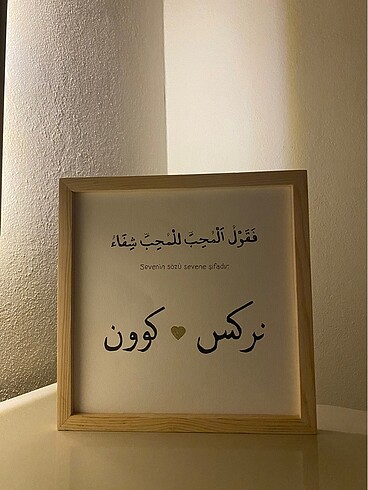 فَقَوْلُ اَلْمُحِبَّ لِلْمُحِبَّ شِفَاءُ
Sevenin sözü sevene şifadır.
نركس كوون